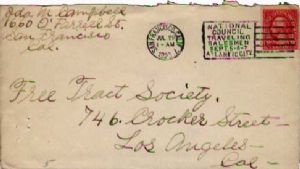 Oda M. Campbell
1660 O'Farrell St.
San Francisco
Cal.
SAN FRANCISCO, CALIF.
JUL 19
1-AM
NATIONAL
COUNCIL
TRAVELING
SALESMEN
SEPT 5-6-7
ATLANTIC CITY
Free Tract Society.
746 Crocker Street -
Los Angeles -
Cal -